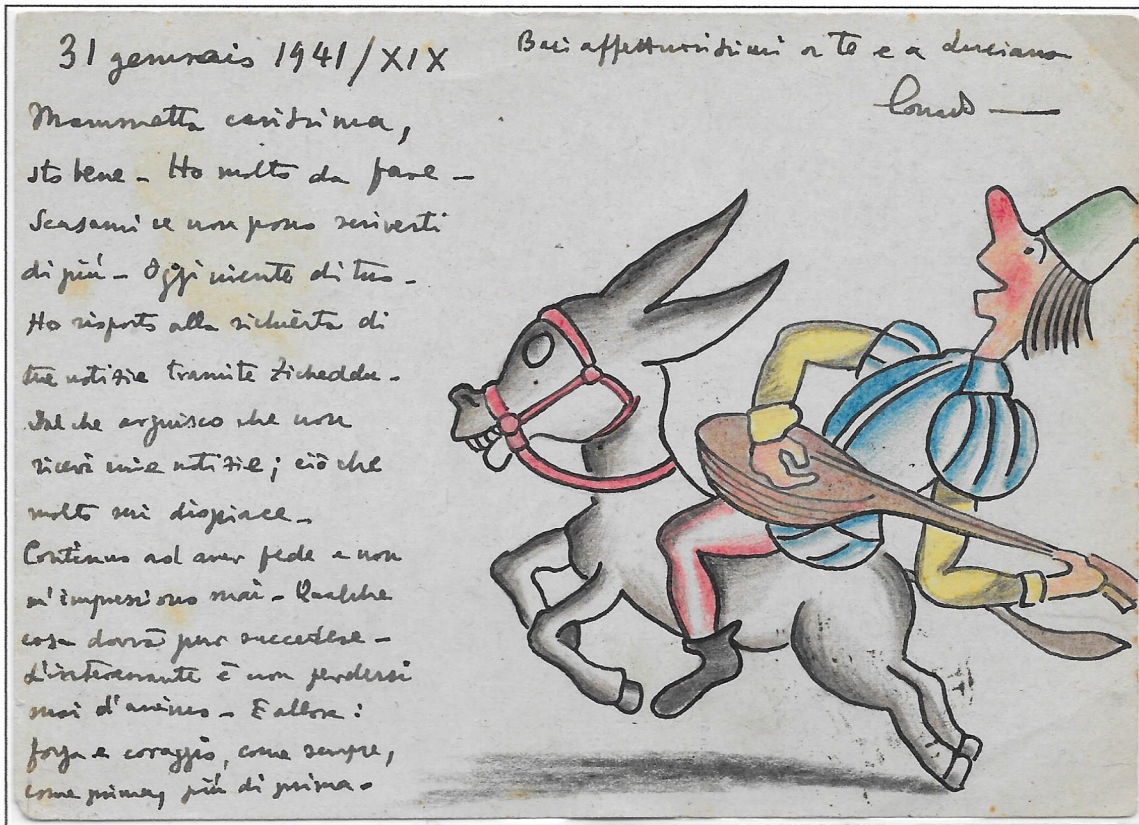 31 gennaio 1941/XIX
Mammetta carissima,
sto bene - Ho molto da fare -
Scusami se non posso scriverti
di più - Oggi niente di tuo -
Ho risposto alla richiesta di
tue notizie tramite Zicheddu -
Dal che arguisco che non
ricevi mie notizie; ciò che
molto mi dispiace -
Continuo ad aver fede e non
m'impressiono mai - Qualche
cosa dovrà pur succedere -
L'interessante è non perdersi
mai d'animo - E allora:
forza e coraggio, come sempre,
come prima, più di prima -
Baci affettuosissimi a te e a Luciano